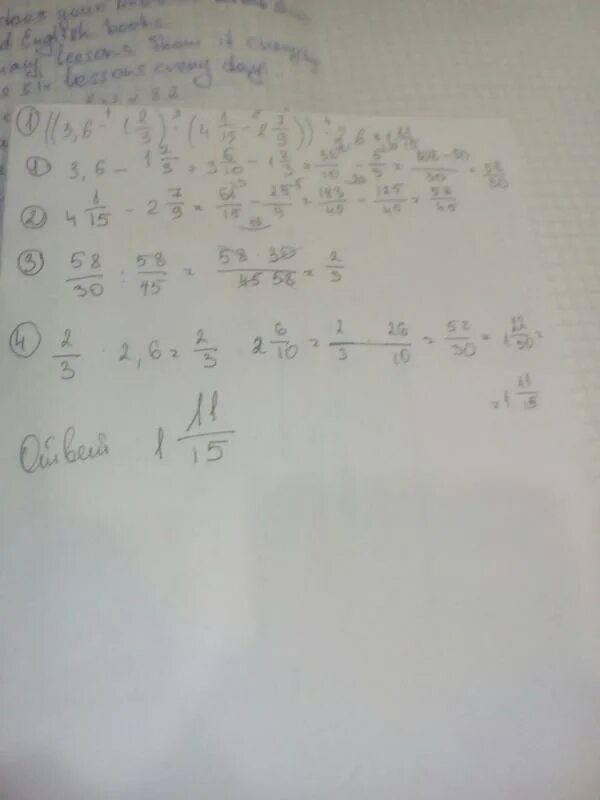 d English books.
lessons every day
1) ((3,6 - 1 2/3) : (4 1/15 - 2 7/9)) · 2,6 = 1 11/15
1) 3,6 - 1 2/3 = 3 6/10 - 1 2/3 = 36/10 - 5/3 = 108 - 50/30 = 58/30
2) 4 1/15 - 2 7/9 = 61/15 - 25/9 = 183/45 - 125/45 = 58/45
3) 58/30 : 58/45 = 58 · 30/45 58 = 2/3
4) 2/3 · 2,6 = 2/3 · 2 6/10 = 2/3 · 26/10 = 52/30 = 1 22/30 =
= 1 11/15
Ответ 1 11/15